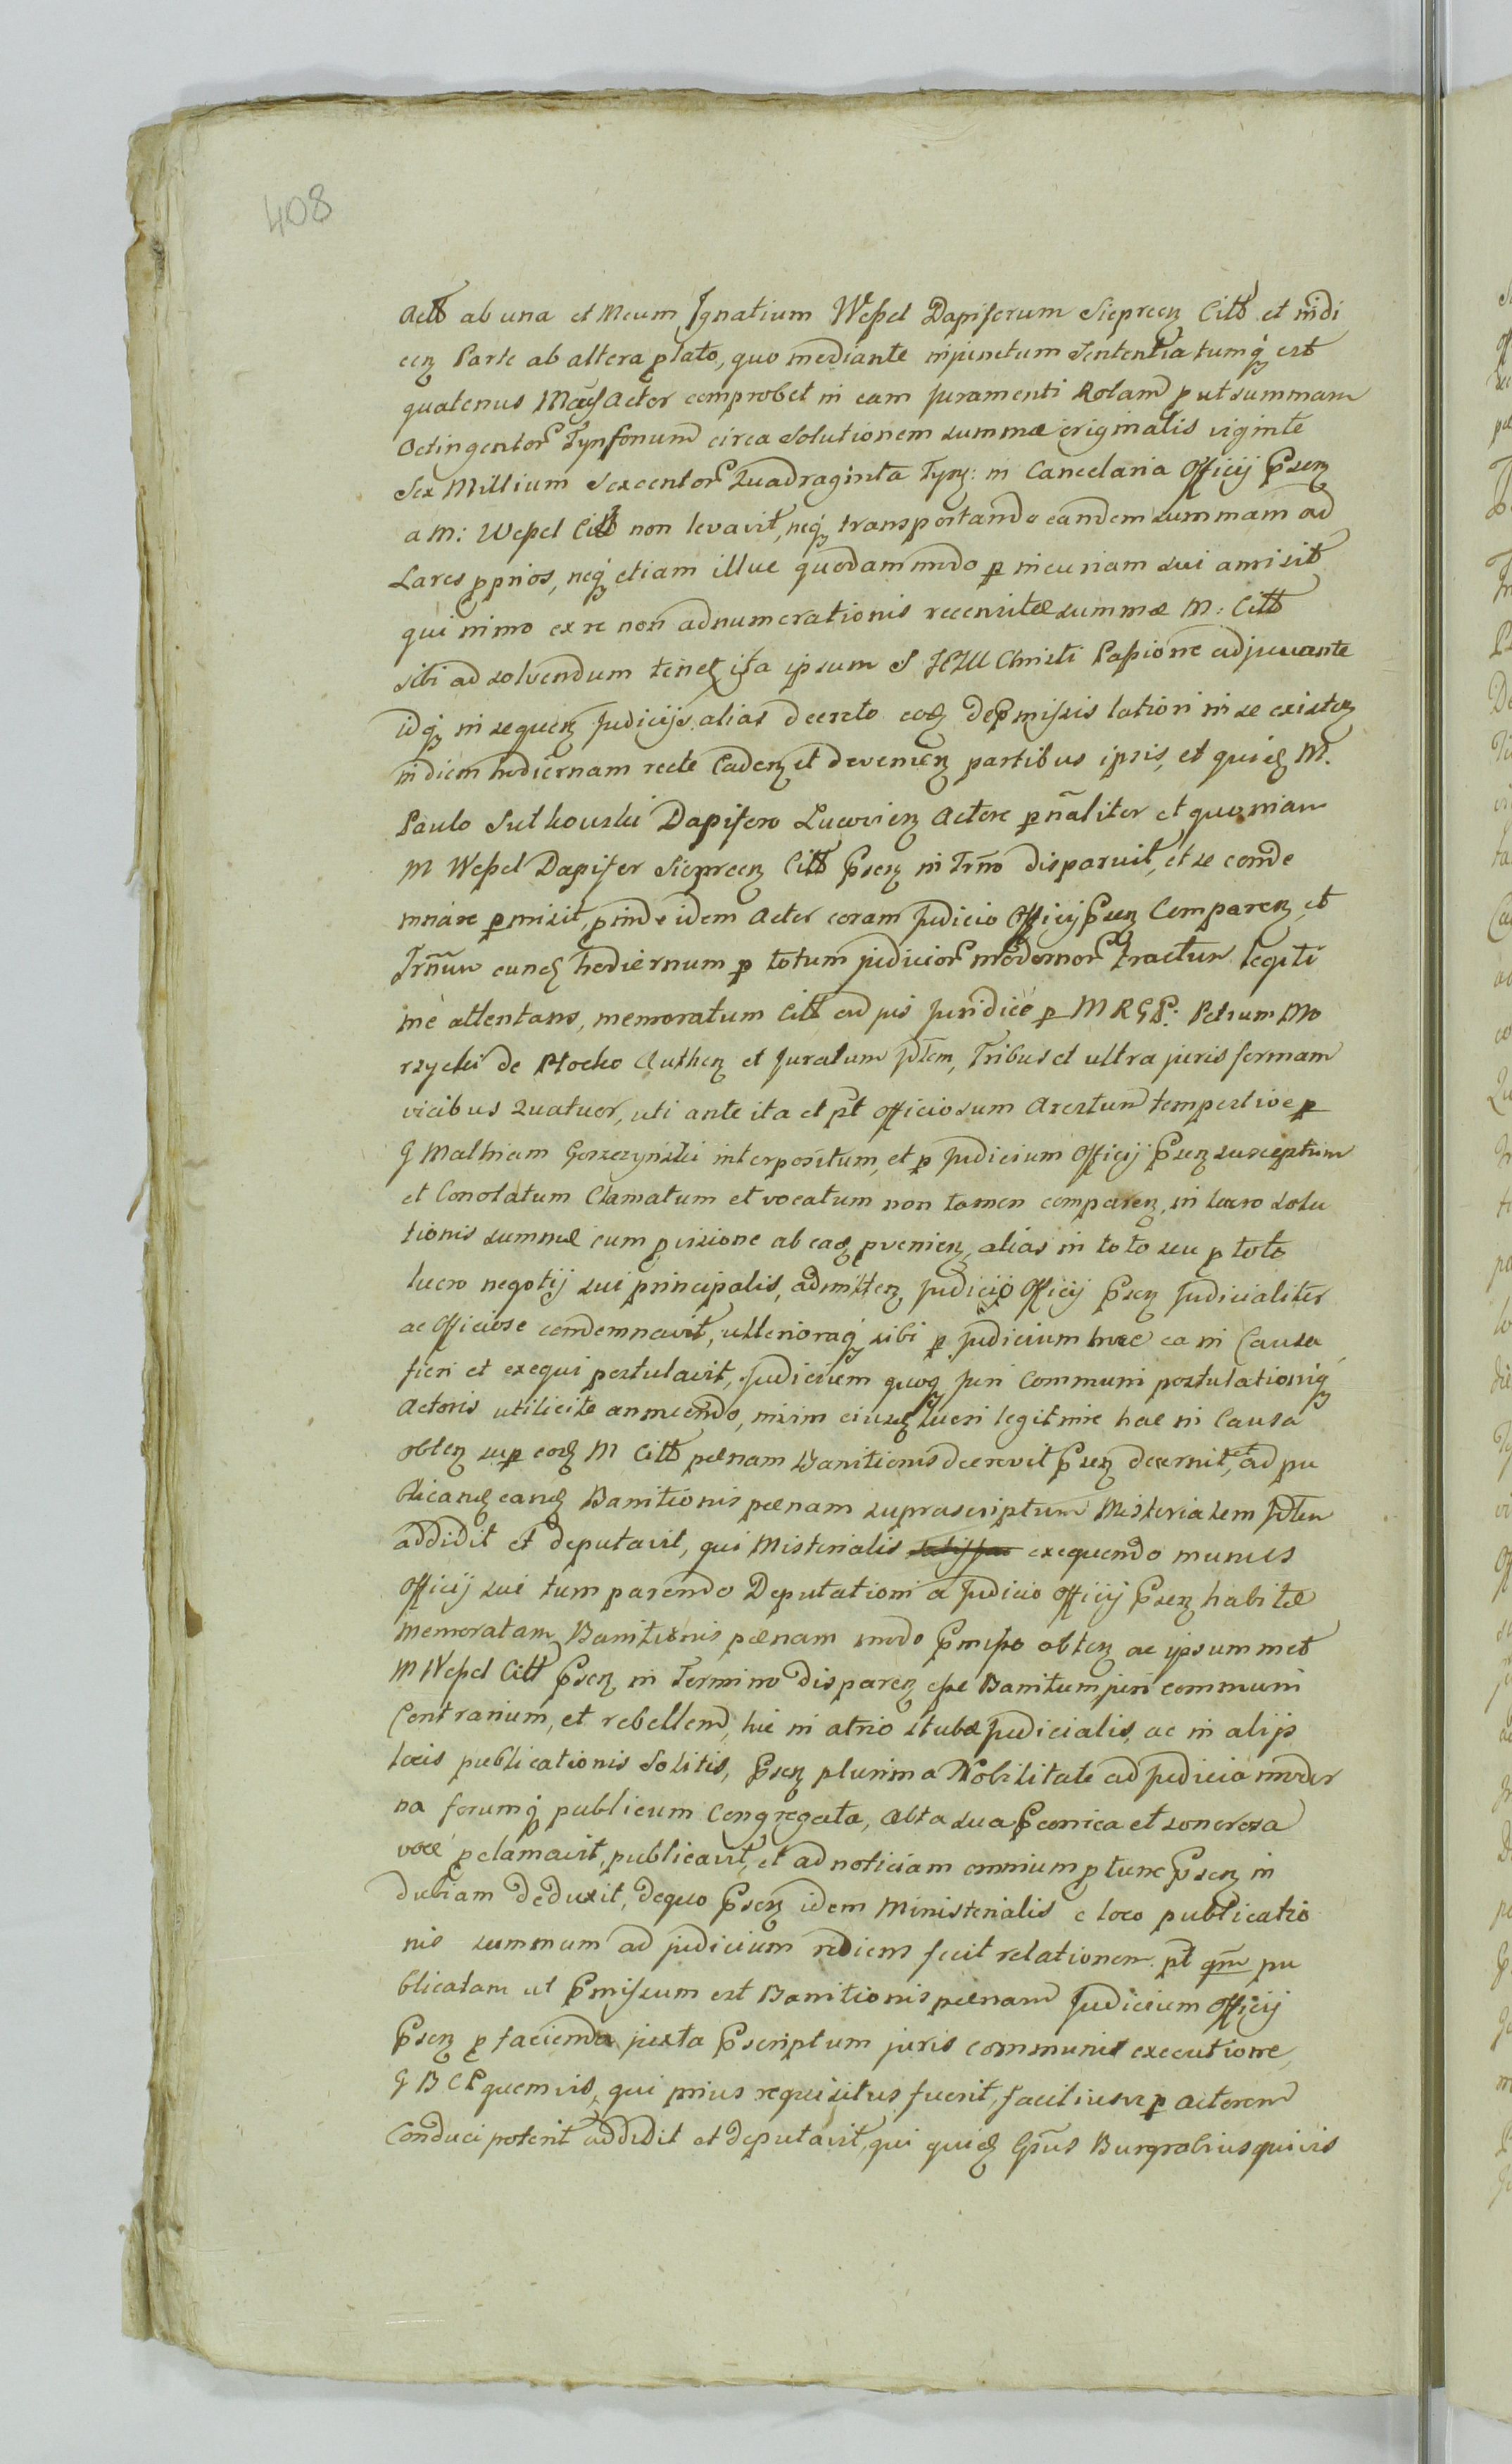 408
Actt ab una et Meum Ignatium Wessel Dapiferum Sieprcen Citt et indi
cen Parte ab altera plato, quo mediante injunctum Sententiatumq; est
quatenus Macus Actor comprobet in eam juramenti Rotam put summam
Octingentor Tynfonum circa Solutionem summæ originalis viginte
Sex Millium Sexcentor Quadraginta Tynf: in Cancelaria Officij Psen
a M: Wessel Citt non levavit, neq; transportando eandem summam ad
Lares pprios, neq; etiam illuc quodammodo p incuriam sui amisit
qui nimo ex re non adnumerationis recensitæ summæ M: Citt
sibi ad solvendum tenet ita ipsum S JESU Christi Passione adjuvante
idq; in sequen Judicijs alias decreto eod depmissis latiori in se existen
in diem hodiernam recte Caden et devenien partibus ipsis, et quid M.
Paulo Sutkouski Dapifero Lucovien Actore pñaliter et quoniam
M Wessel Dapifer Sieprcen Citt Psen in Trño disparuit, et se conde
mnare pmisit, pinde idem Actor coram Judicio Officij Psen Comparen et
Trñum eund hodiernum p totum judicior modernor tractum legiti
me attentans, memoratum Citt ad jus juridice p M R G P: Petrum Mo
rzycki de Płocko Authen et Juratum ptem, Tribus et ultra juris formam
vicibus Quatuor, uti ante ita et pt officiosum Arestum tempestive p
G Mathiam Goszczynski interpositum, et p Judicium Officij Psen susceptum
et Conotatum Clamatum et vocatum non tamen comparen, in lucro solu
tionis summæ cum pvisione ab ead pvenien, alias in toto seu p toto
lucro negotij sui principalis, admitten Judicio Officij Psen Judicialiter
ac Officiose condemnavit, ullterioraq; sibi p Judicium hoc ea in Causa
fieri et exequi postulavit, Judicium quoq; juri Communi postulationiq;
Actoris utilicite annuendo, inim eiusd lucri legitime hac in Causa
obten sup eod M Citt pænam Banitionis decrevit Psen decernit, et ad pu
blicand eand Banitionis pænam suprascriptum Misterialem ptem
addidit et deputavit, qui Misterialis exequendo munus
Officij sui tum parendo Deputationi a Judicio Officij Psen habitæ
memoratam Banitionis pænam modo Pmisso obten ac ipsummet
M Wessel Citt Psen in Termino disparen esse Banitum juri communi
Contrarium, et rebellem, hic in atrio stubæ Judicialis, ac in alijs
locis publicationis Solitis, Psen plurima Nobilitate ad Judicia moder
na forumq; publicum Congregata, Alta sua Pconica et sonorosa
voce pclamavit, publicavit, et ad noticiam omnium p tunc Psen in
dubiam deduxit, dequo Psen idem Ministerialis e loco publicatio
nis summum ad judicium rediens fecit relationem. pt qm pu
blicatam ut Pmissum est Banitionis pænam Judicium Officij
Psen p facienda juxta Pscriptum juris communis executione,
G B C P quemvis, qui prius requisitus fuerit, faciliusve p Actorem
Conduci poterit addidit et deputavit, qui quid Gsus Burgrabius quivis